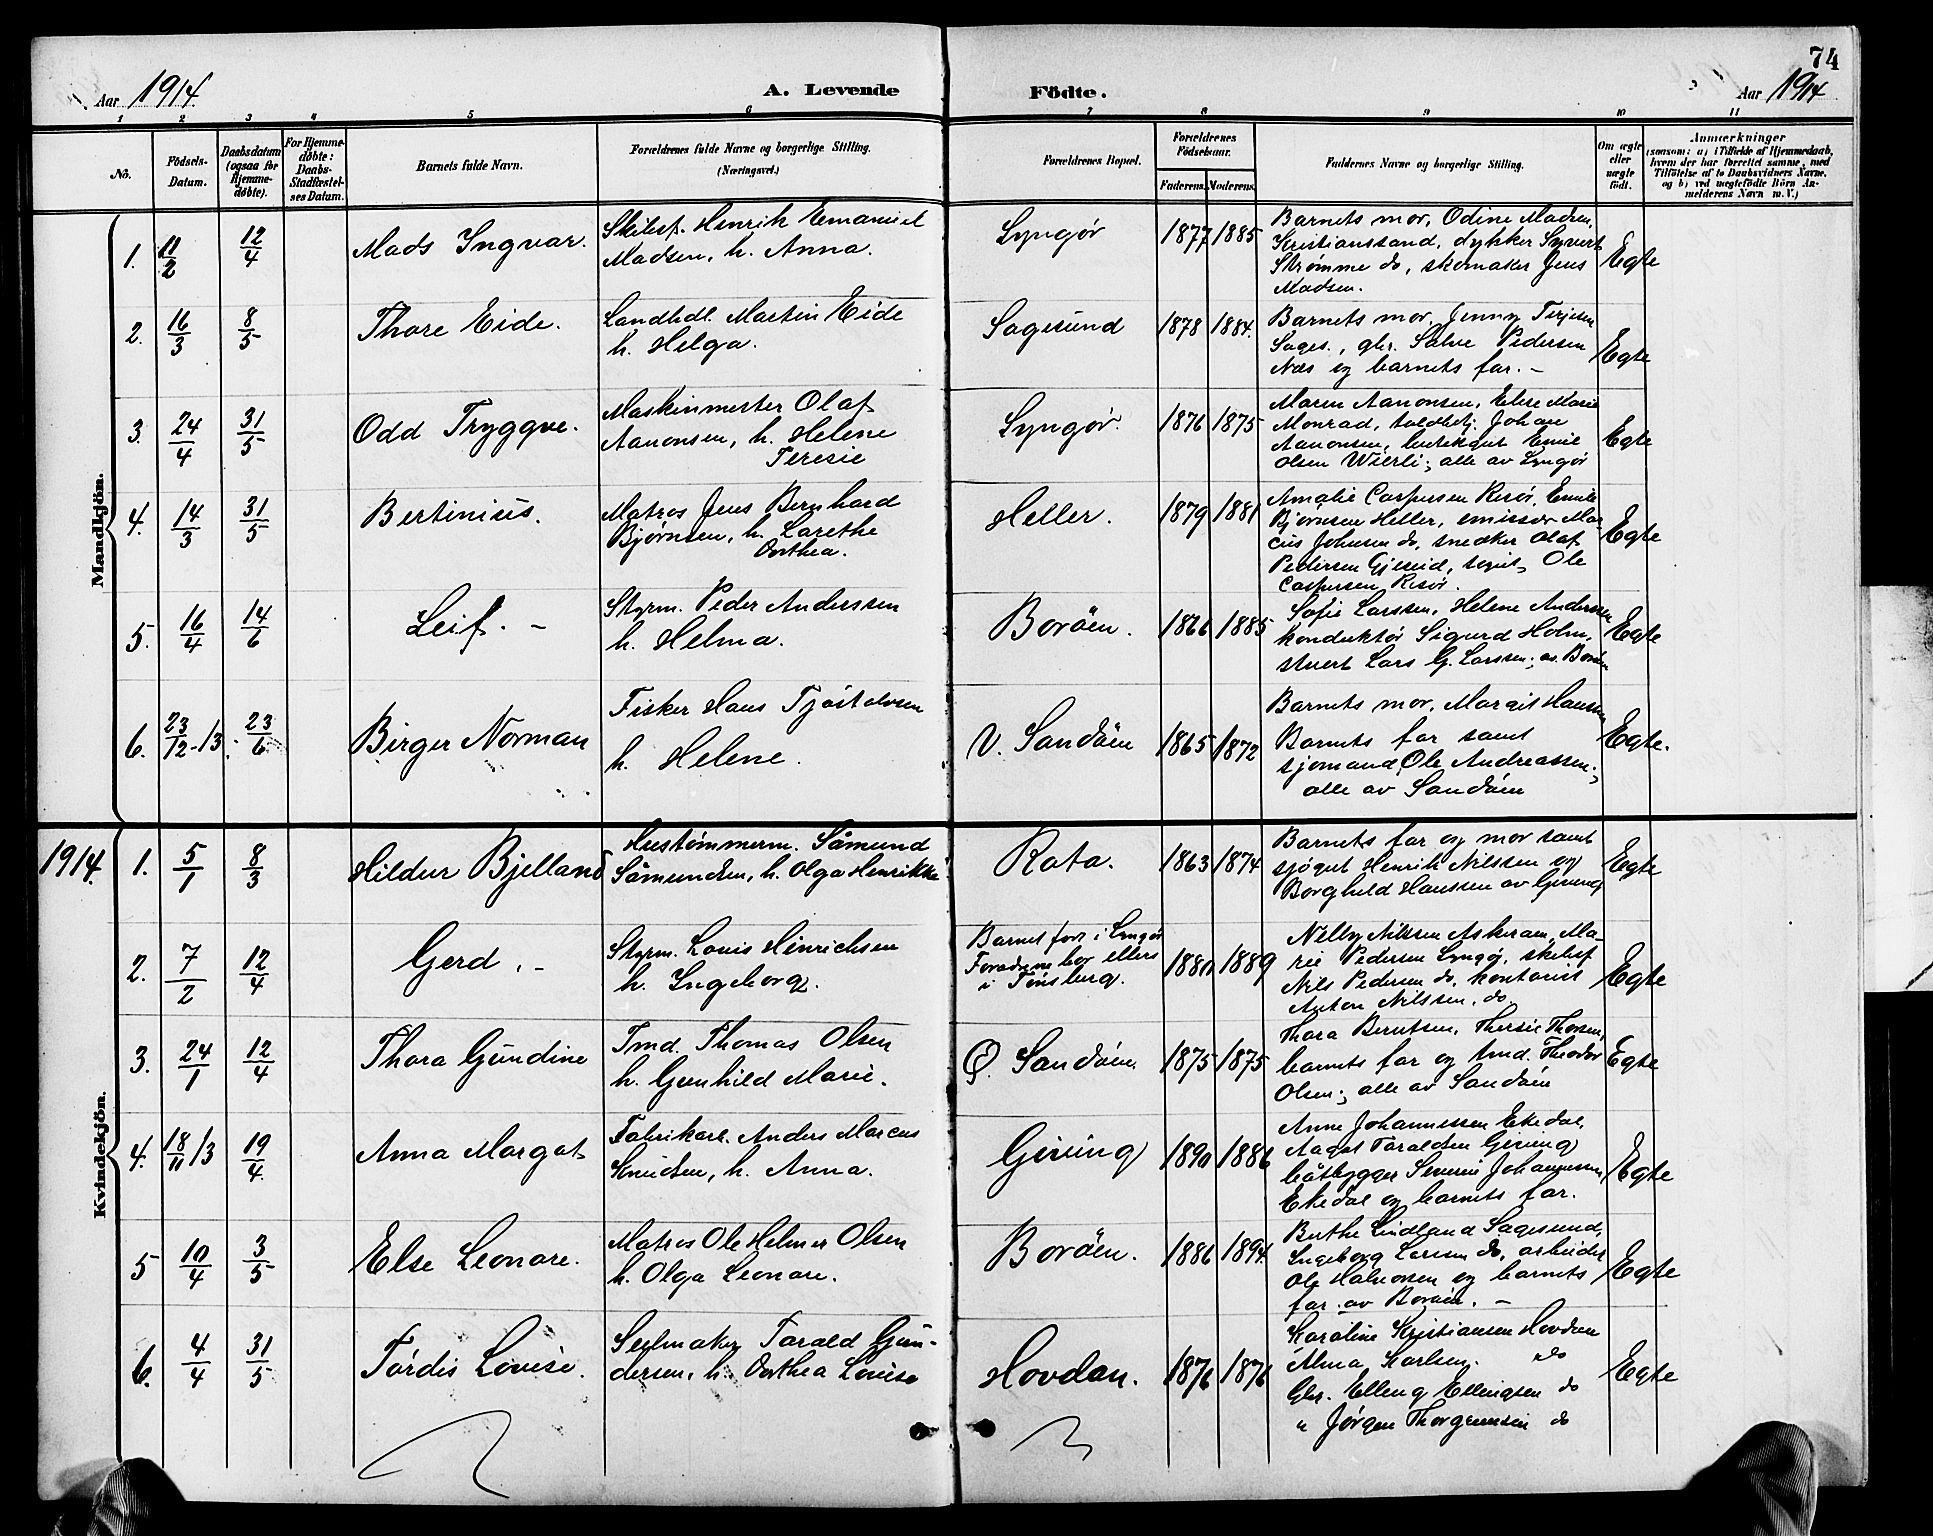 74
Aar 1914
A. Levende
Födte.
Aar 1914
1 2 3 4 5 6 7 8 9 10 11
No.
Födsels-
Datum.
Daabsdatum
(ogsaa for
Hjemme-
døbte).
For Hjemme-
døbte:
Daabs-
Stadfæstel-
ses Datum.
Barnets fulde Navn.
Forældrenes fulde Navne og borgerlige Stilling.
(Næringsvei.)
Forældrenes Bopæl.
Forældrenes
Födselsaar.
Faderens. Moderens.
Faddernes Navne og borgerlige Stilling.
Om ægte
eller
uægte
født.
Anmærkninger
(saasom: a) i Tilfælde af Hjemmedaab,
hvem der har forrettet samme, med
Tilföielse af to Daabsvidners Navne,
og b) ved uægtefödte Börn An-
melderens Navn m. V.)
Mandkjön.
1. 11/2 12/4 Mads Ingvar.
Skibsf. Henrik Emanuel
Madsen, h. Anna.
Lyngør 1877 1885
Barnets mor, Odine Madsen,
Kristianssand, dykker Syvert
Strømme do, skomaker Jens
Madsen.
Egte
2. 16/3 8/5 Thore Eide.
Landhdl. Martin Eide
h. Helga.
Sagesund 1878 1884.
Barnets mor, Jenny Terjesen
Sages., gbr. Salve Pedersen
Næs og barnets far. -
Egte
3. 24/4 31/5 Odd Tryggve.
Maskinmester Olaf
Aanonsen, h. Helene
Teresie
Lyngør 1876 1875
Maren Aanonsen, Elise Marie
Monrad, toldbetj. Johan
Aanonsen, Emil
Olsen Wierli; alle av Lyngør
Egte
4. 14/3 31/5 Bertinius.
Matros Jens Bernhard
Bjørnsen, h. Larethe
Orthea.
Heller. 1879 1881
Amalie Caspersen Risør, Emilie
Bjørnsen Heller, emissær Mar-
cus Johnsen do, snedker Olaf
Pedersen Gjeseid, Ole
Caspersen Risør.
Egte
5. 16/4 14/6 Leif. -
Styrm. Peder Anderssen
h. Helma.
Borøen. 1866 1885
Sofie Larssen, Helene Anderssen
konduktør Sigurd Holm,
stuert Lars G. Larssen; av Borøen
Egte
6. 23/12-13. 23/6 Birger Norman
Fisker Hans Tjøstolvsen
h. Helene.
V. Sandøen 1865 1872
Barnets mor, Margit Hansen
Barnets far samt
sjømand Ole Andreassen;
alle av Sandøen
Egte.
Kvindekjön.
1914. 1. 5/1 8/3 Hildur Bjelland
Hustømmerm. Såmund
Såmundsen, h. Olga Henrikke
Rota. 1863 1874
Barnets far og mor samt
sjøgut Henrik Nilssen og
Borghild Hanssen av Gjeving
Egte
2. 7/2 12/4 Gerd. -
Styrm. Louis Hinrichsen
h. Ingeborg.
Barnet født i Lyngør
Forældrene bor ellers
i Tønsberg.
1880 1889
Nelly Nilssen Askerøen, Ma-
rie Pedersen Lyngør, skibsf
Nils Pedersen do, kontorist
Anton Nilssen, do.
Egte
3. 24/1 12/4 Thora Gundine
Tmd. Thomas Olsen
h. Gunhild Marie.
Ø. Sandøen 1875 1875
Thora Berntsen, Thersie Thorsen,
barnets far og tmd. Theodor
Olsen; alle av Sandøen
Egte
4. 18/11 13 19/4. Anna Margot
Fabrikarb. Anders Marcus
Knudsen, h. Anna.
Gjeving 1890 1886
Anne Johannessen Ekedal,
Aagot Taraldsen Gjeving
båtbygger Severin Johannessen
Ekedal og barnets far.
Egte
5 10/4 3/5 Else Leonare.
Matros Ole Helmer Olsen
h. Olga Leonare.
Borøen. 1886 1894.
Berthe Lindland Sagesund,
Ingeborg Larsen do, arbeider
Ole Halvorsen og barnets
far. av Borøen. -
Egte
6. 4/4 31/5 Tordis Lovise.
Seilmaker Tarald Gun-
dersen, h. Orthea Lovise
Hovdan. 1876 1876
Karoline Kristiansen Hovdan
Alma Karlsen. do
Gbr. Elling Ellingsen do
" Jørgen Thorgrimsen do
Egte